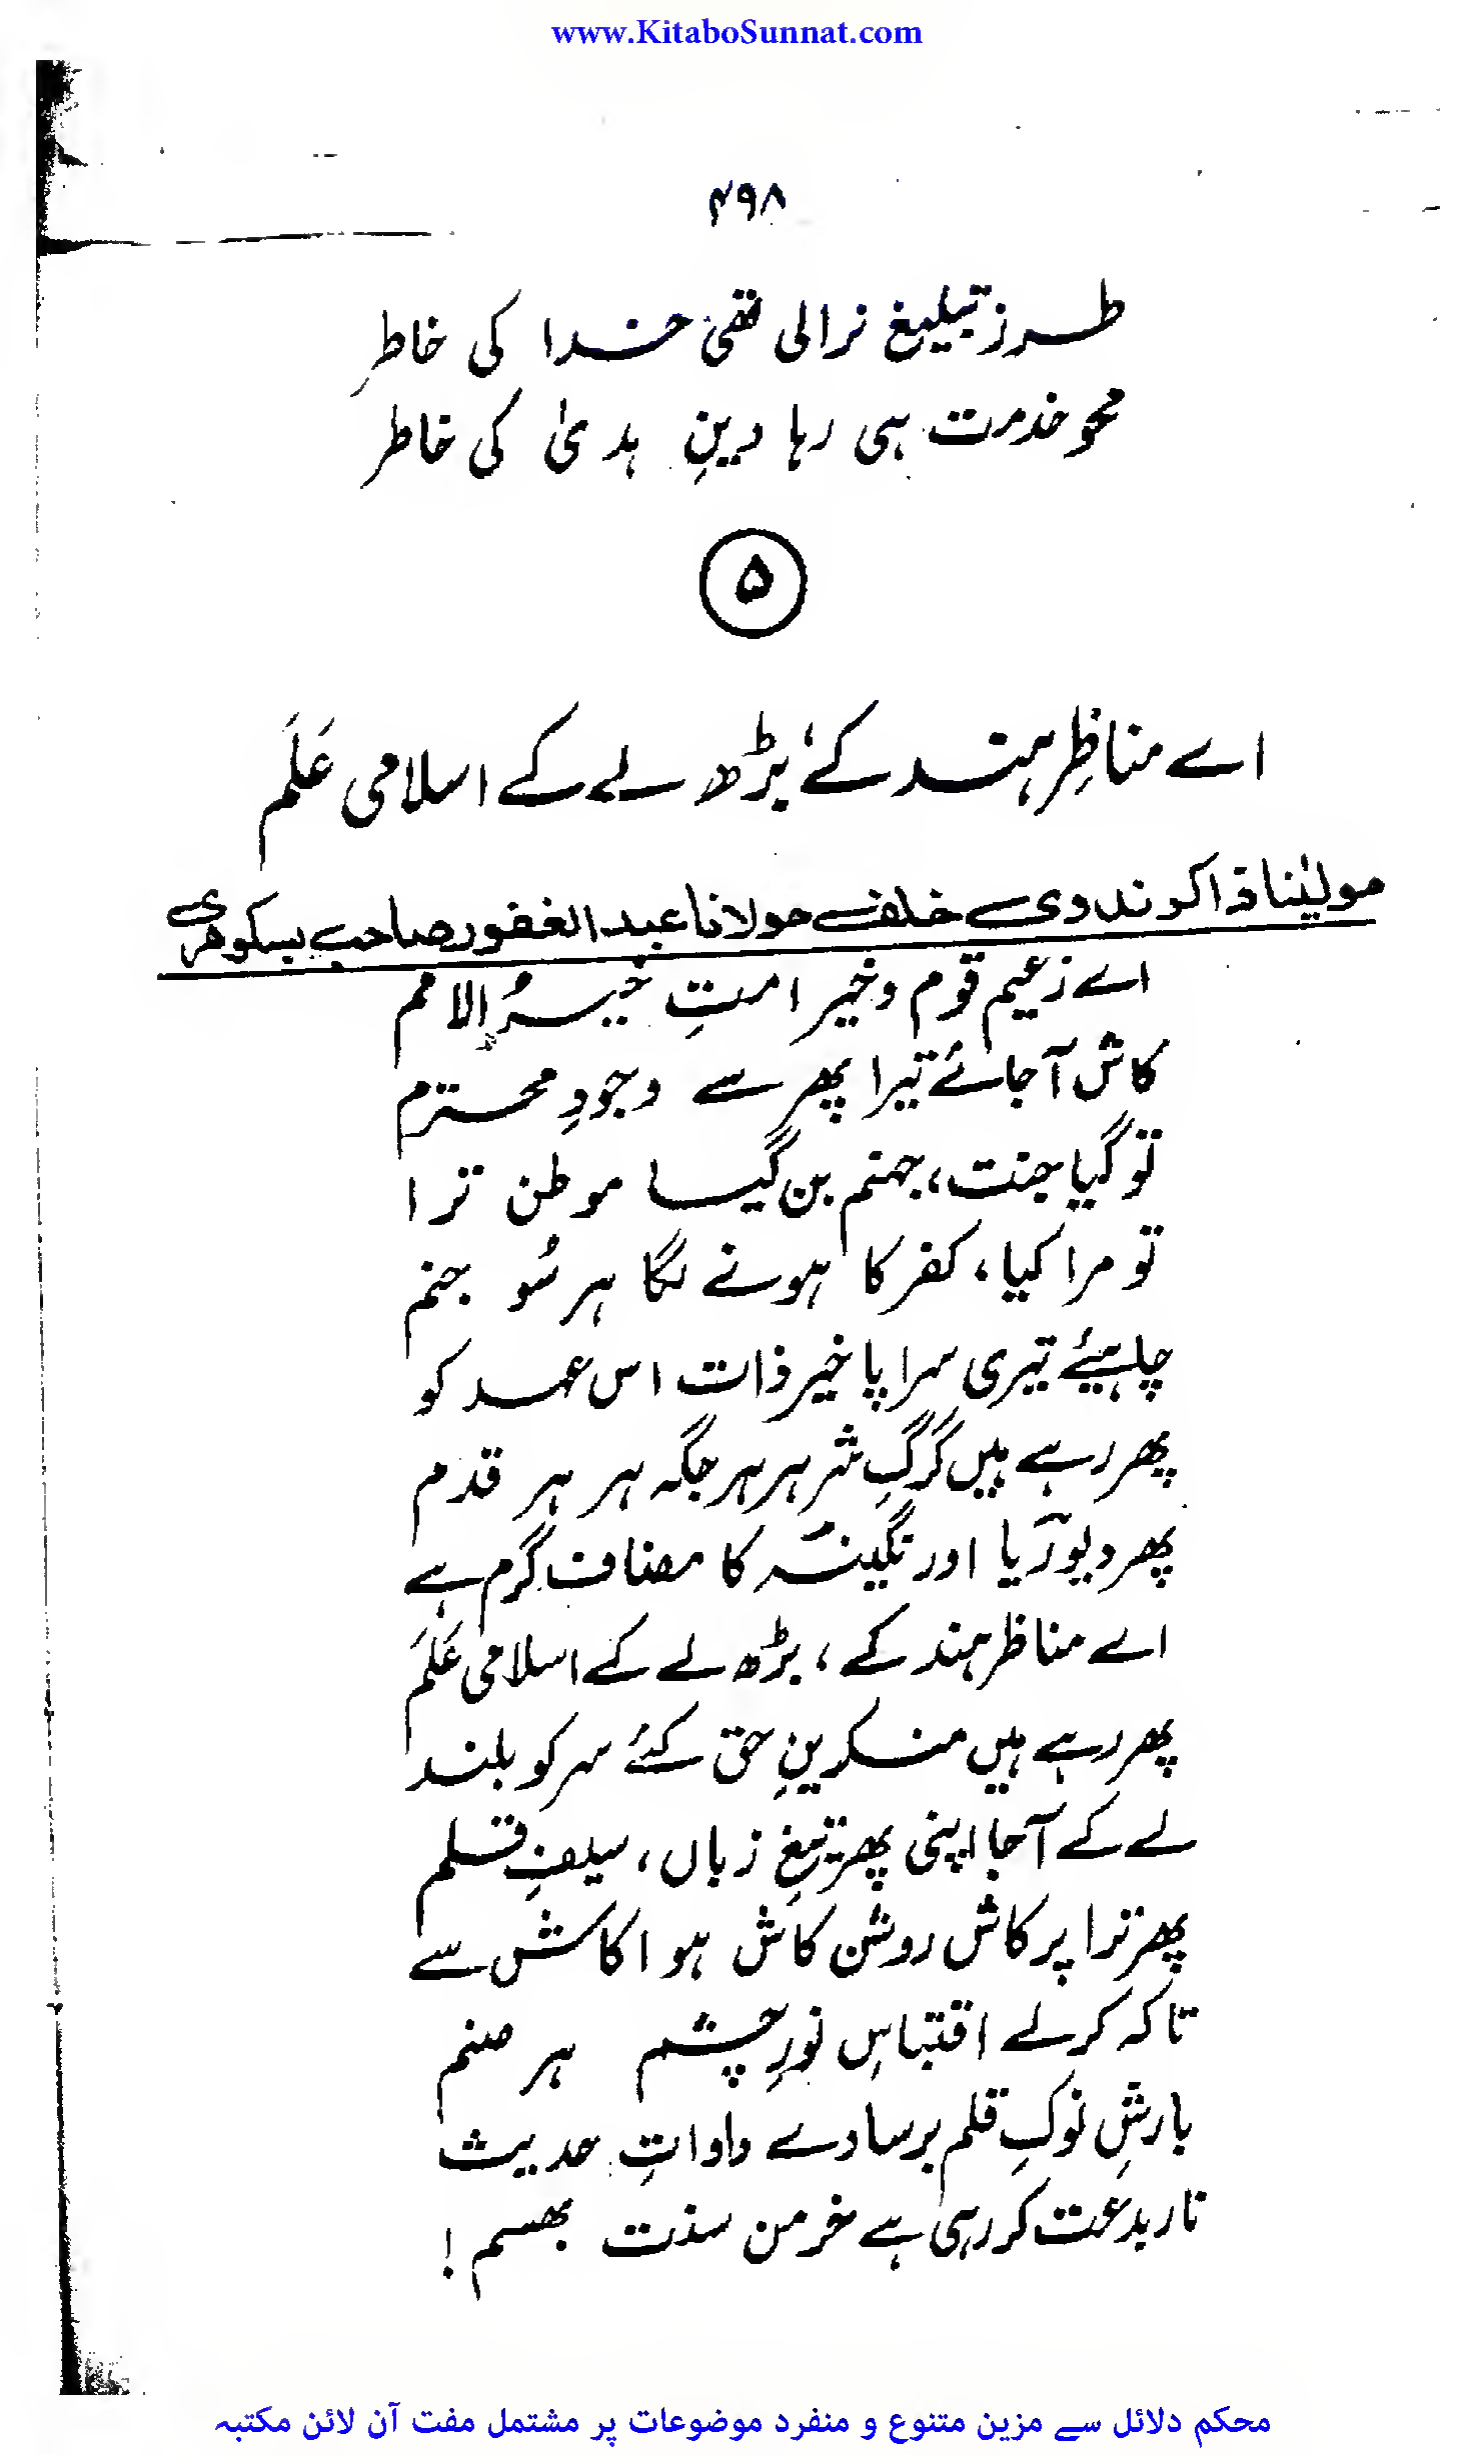 www.KitaboSunnat.com
۴۹۸
طرز تبلیغ نرالی تھی خدا کی خاطر
محو خدمت ہی رہا دینِ ہدیٰ کی خاطر
۵
اے مناظِر ہند کے، بڑھ لے کے اسلامی عَلَم
مولیٰنا ذاکر ندوی خلف مولانا عبد الغفور صاحب بسکوہری
اے زعیم قوم و خیر امتِ خیرُ الامم
کاش آجائے تیرا پھر سے وجودِ محترم
تو گیا جنت، جہنم بن گیا موطن ترا
تو مرا کیا، کفر کا ہونے لگا ہر سُو جنم
چاہیئے تیری سراپا خیر ذات اس عہد کو
پھر رہے ہیں گرگِ شر ہر ہر جگہ ہر ہر قدم
پھر دیوریا اور نگینہ کا مصاف گرم ہے
اے مناظر ہند کے، بڑھ لے کے اسلامی عَلَم
پھر رہے ہیں منکرینِ حق کئے سر کو بلند
لے کے آجا اپنی پھر تیغِ زباں، سیفِ قلم
پھر ترا پرکاش روشن کاش ہو اکاش سے
تاکہ کرلے اقتباسِ نورِ چشم ہر صنم
بارشِ نوکِ قلم برسادے داواتِ حدیث
نار بدعت کر رہی ہے خرمن سنت بھسم !
محکم دلائل سے مزین متنوع و منفرد موضوعات پر مشتمل مفت آن لائن مکتبہ